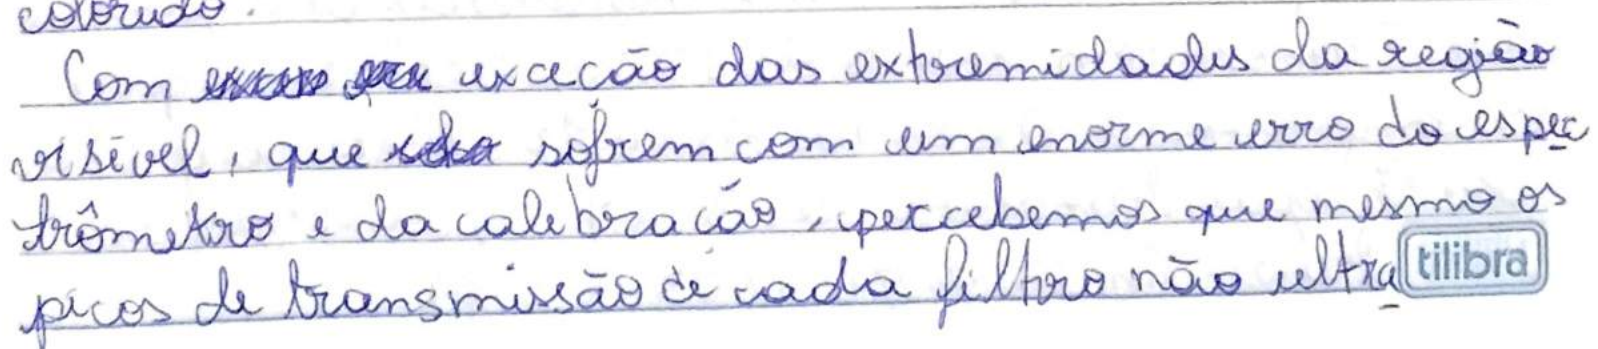 colorido.
Com exceção das extremidades da região
visível, que sofrem com um enorme erro do espec
trômetro e da calibração, percebemos que mesmo os
picos de transmissão de cada filtro não ultra
tilibra